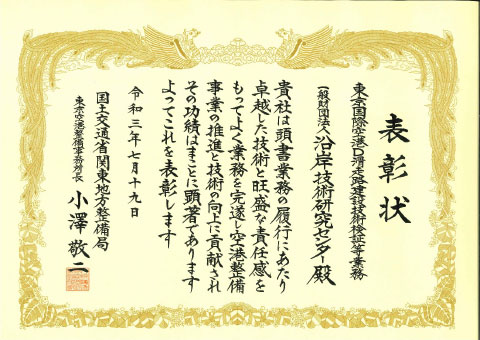 表彰状
東京国際空港D滑走路建設技術検証等業務
一般財団法人沿岸技術研究センター殿
貴社は頭書業務の履行にあたり
卓越した技術と旺盛な責任感を
もってよく業務を完遂し空港整備
事業の推進と技術の向上に貢献され
その功績はまことに顕著であります
よってこれを表彰します
令和三年七月十九日
国土交通省関東地方整備局
東京空港整備事務所長 小澤敬二